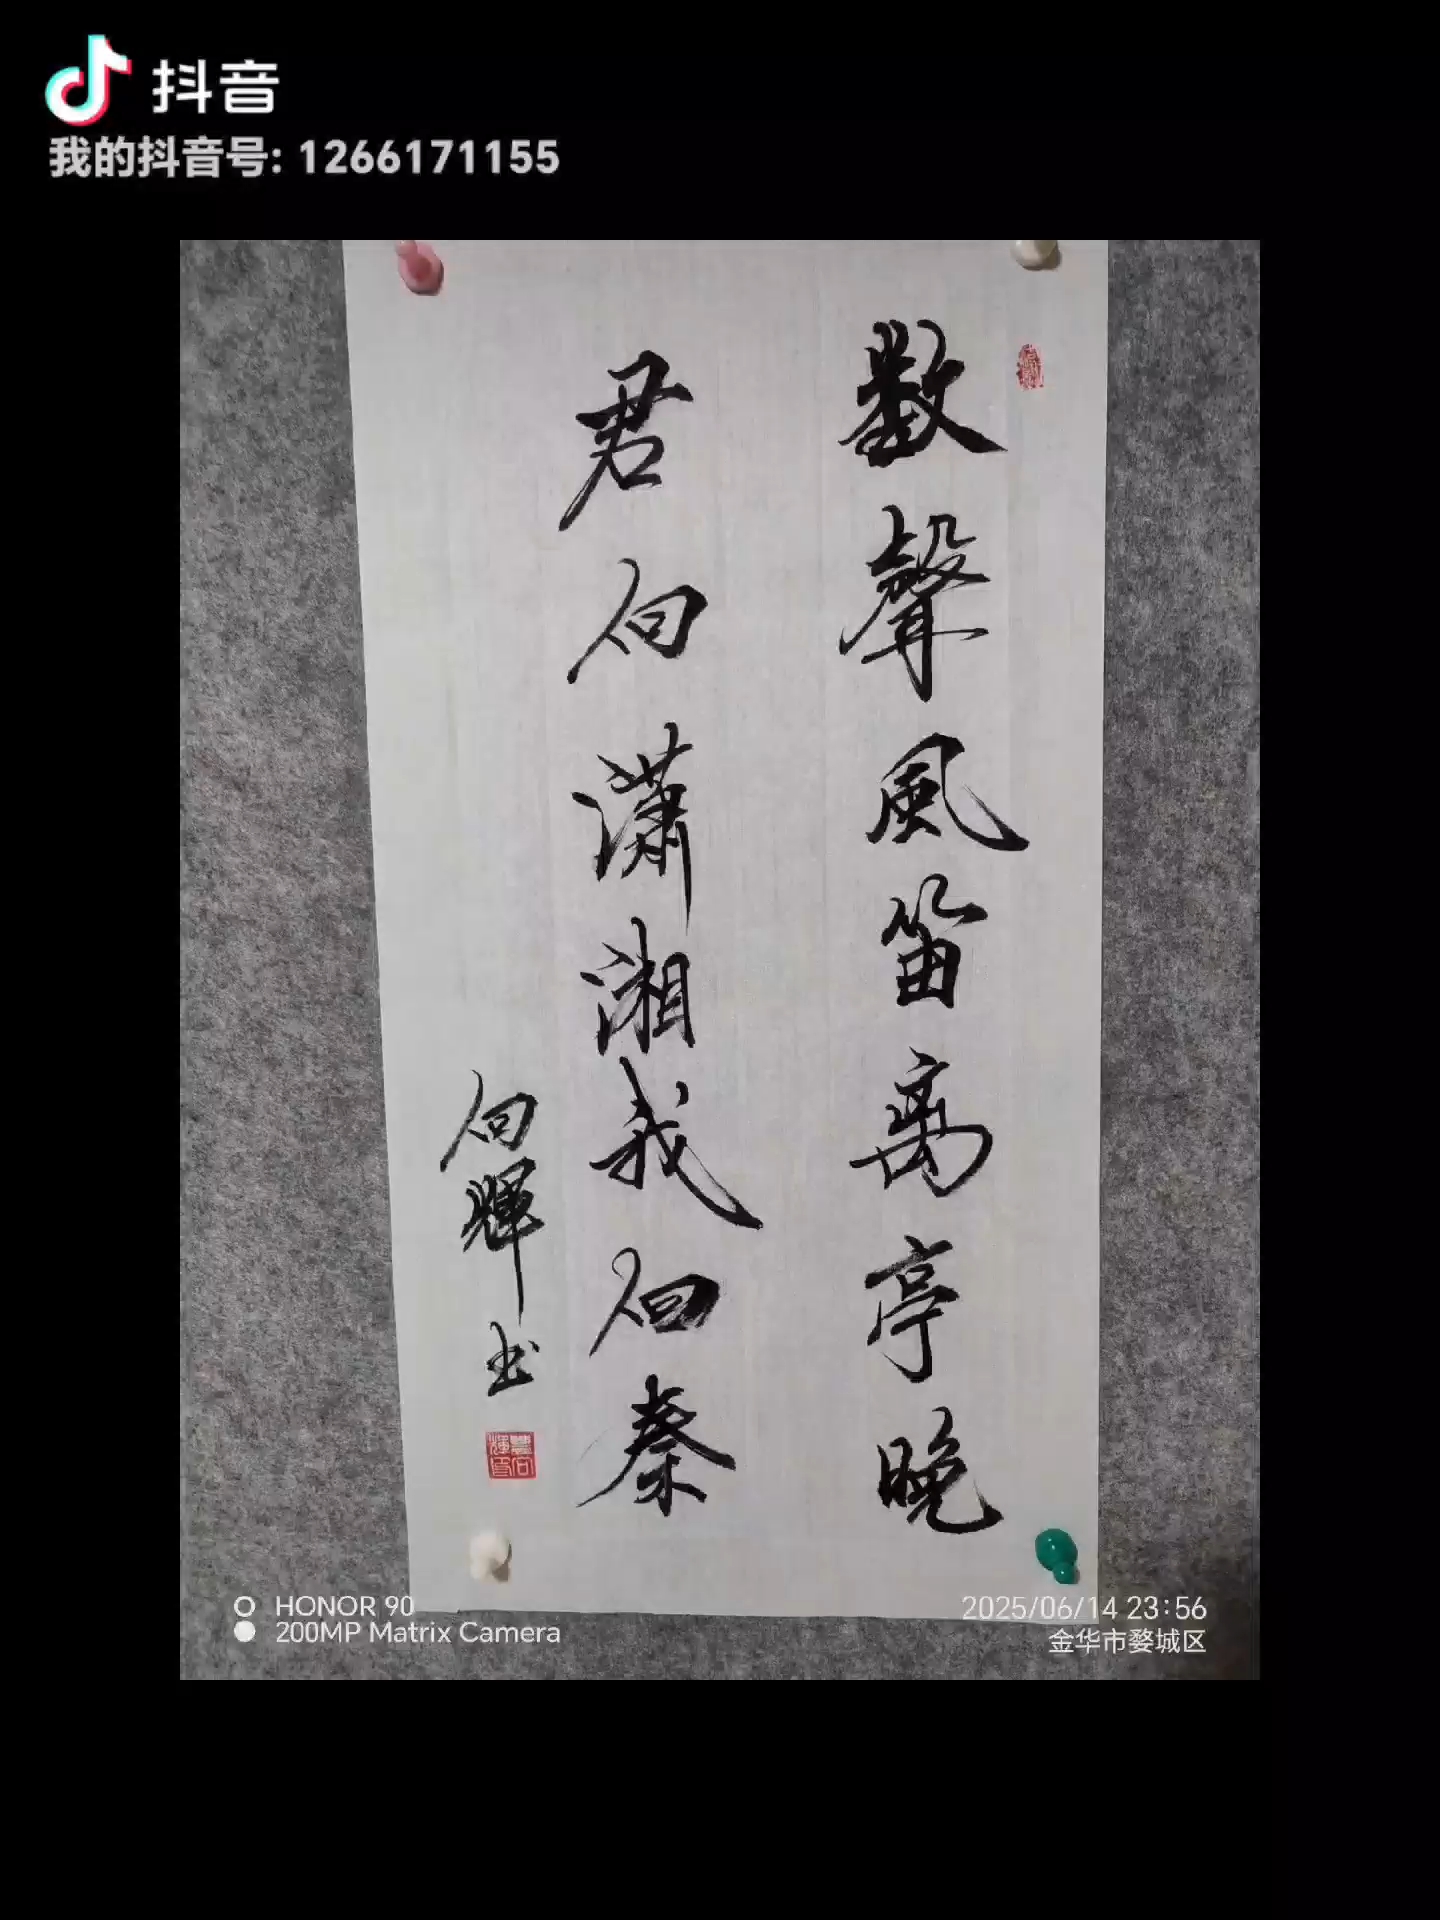 抖音
我的抖音号: 1266171155
数聲風笛离亭晚
君向瀟湘我向秦
向輝书
HONOR 90
200MP Matrix Camera
2025/06/14 23:56
金华市婺城区